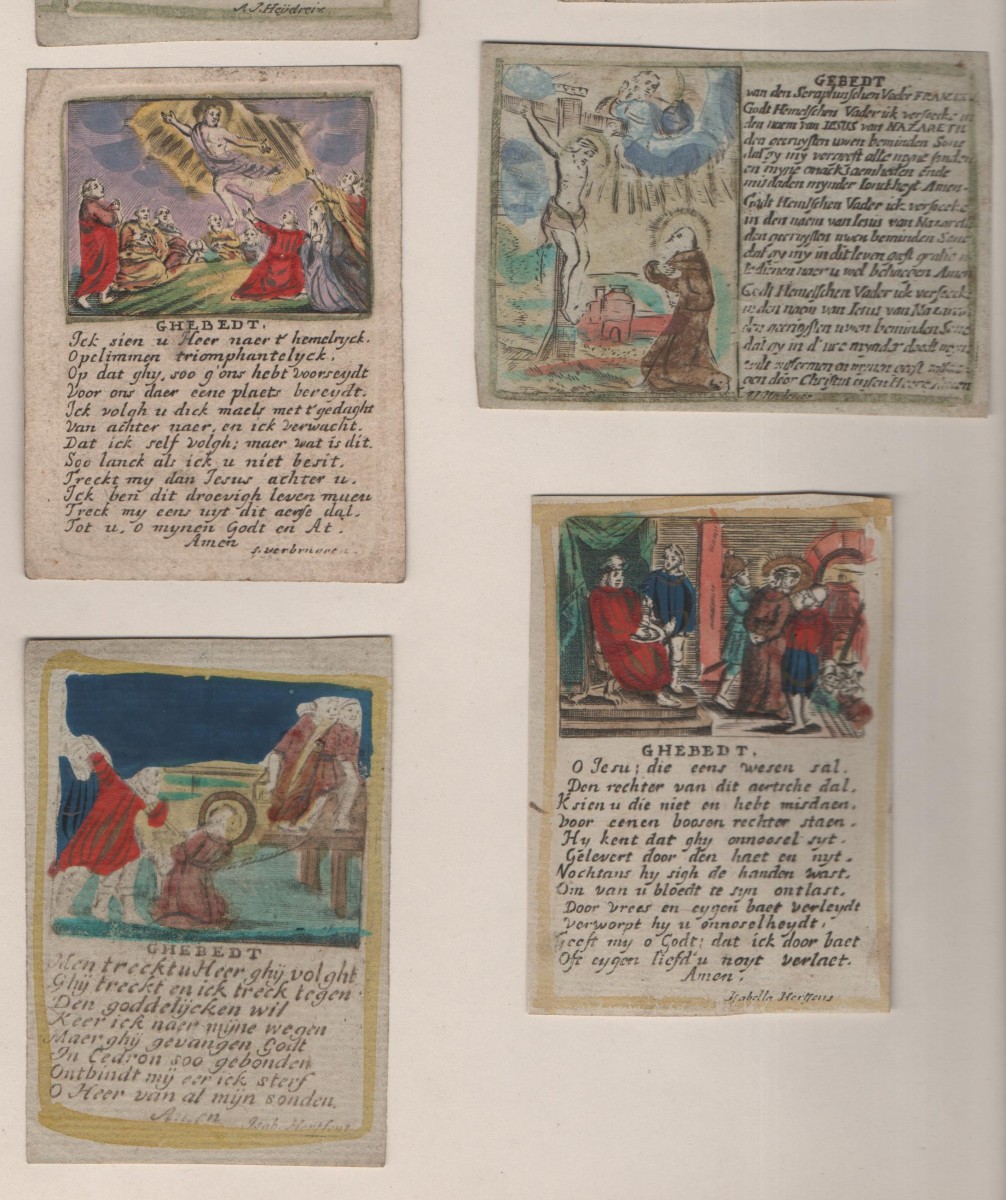 A.J. Heÿdreix
GHEBEDT.
Ick sien u Heer naer t' hemelryck.
Opclimmen triomphantelyck.
Op dat ghy, soo g'ons hebt voorseydt
Voor ons daer eene plaets bereydt.
Ick volgh u dick maels met t'gedaght
Van achter naer, en ick verwacht.
Dat ick self volgh; maer wat is dit.
Soo lanck als ick u niet besit.
Treckt my dan Iesus achter u.
Ick ben dit droevigh leven mueu
Treck my eens uyt dit aerse dal.
Tot u, o mynen Godt en Al.
Amen
s. verbruggen.
GEBEDT
van den Seraphinschen Vader
Godt Hemelschen Vader ick versoecke
den naem van IESUS van NAZARETH
den gecruysten uwen beminden Sone
dat gy my vergeeft alle myne sonden
en myne ende
misdaden mynder Ionckheyt Amen.
Godt Hemlschen Vader ick versoecke
in den naem van Iesus van Nazareth
den gecruysten uwen beminden Sone
dat gy my in dit leven geeft gratie
te dienen naer u wel behaegen Amen
Godt Hemelschen Vader ick versoecke
in den naem van Iesus van
den gecruysten uwen beminden Sone
dat gy in d' ure mynder doodt
wilt en mynen geest
gen door Christus onsen Heere Amen
GHEBEDT.
O Iesu; die eens wesen sal.
Den rechter van dit aertsche dal.
K sien u die niet en hebt misdaen.
Voor eenen boosen rechter staen.
Hy kent dat ghy onnoosel syt.
Gelevert door den haet en nyt.
Nochtans hy sigh de handen wast.
Om van u bloedt te syn ontlast.
Door vrees en eygen baet verleydt
Verworpt hy u onnoselheydt.
Geeft my o Godt; dat ick door baet
Oft eygen liefd'u noyt verlaet.
Amen.
Isabella Hertsens
GHEBEDT
Men treckt u Heer ghij volght
Ghij treckt en ick treck tegen
Den goddelijcken wil
Keer ick naer mijne wegen
Maer ghij gevangen Godt
In Cedron soo gebonden
Ontbindt mij eer ick sterf
O Heer van al mijn sonden.
Amen
Isab. Hertsens